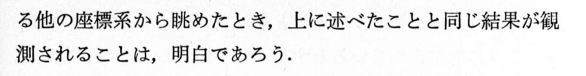 る他の座標系から眺めたとき，上に述べたことと同じ結果が観
測されることは，明白であろう．